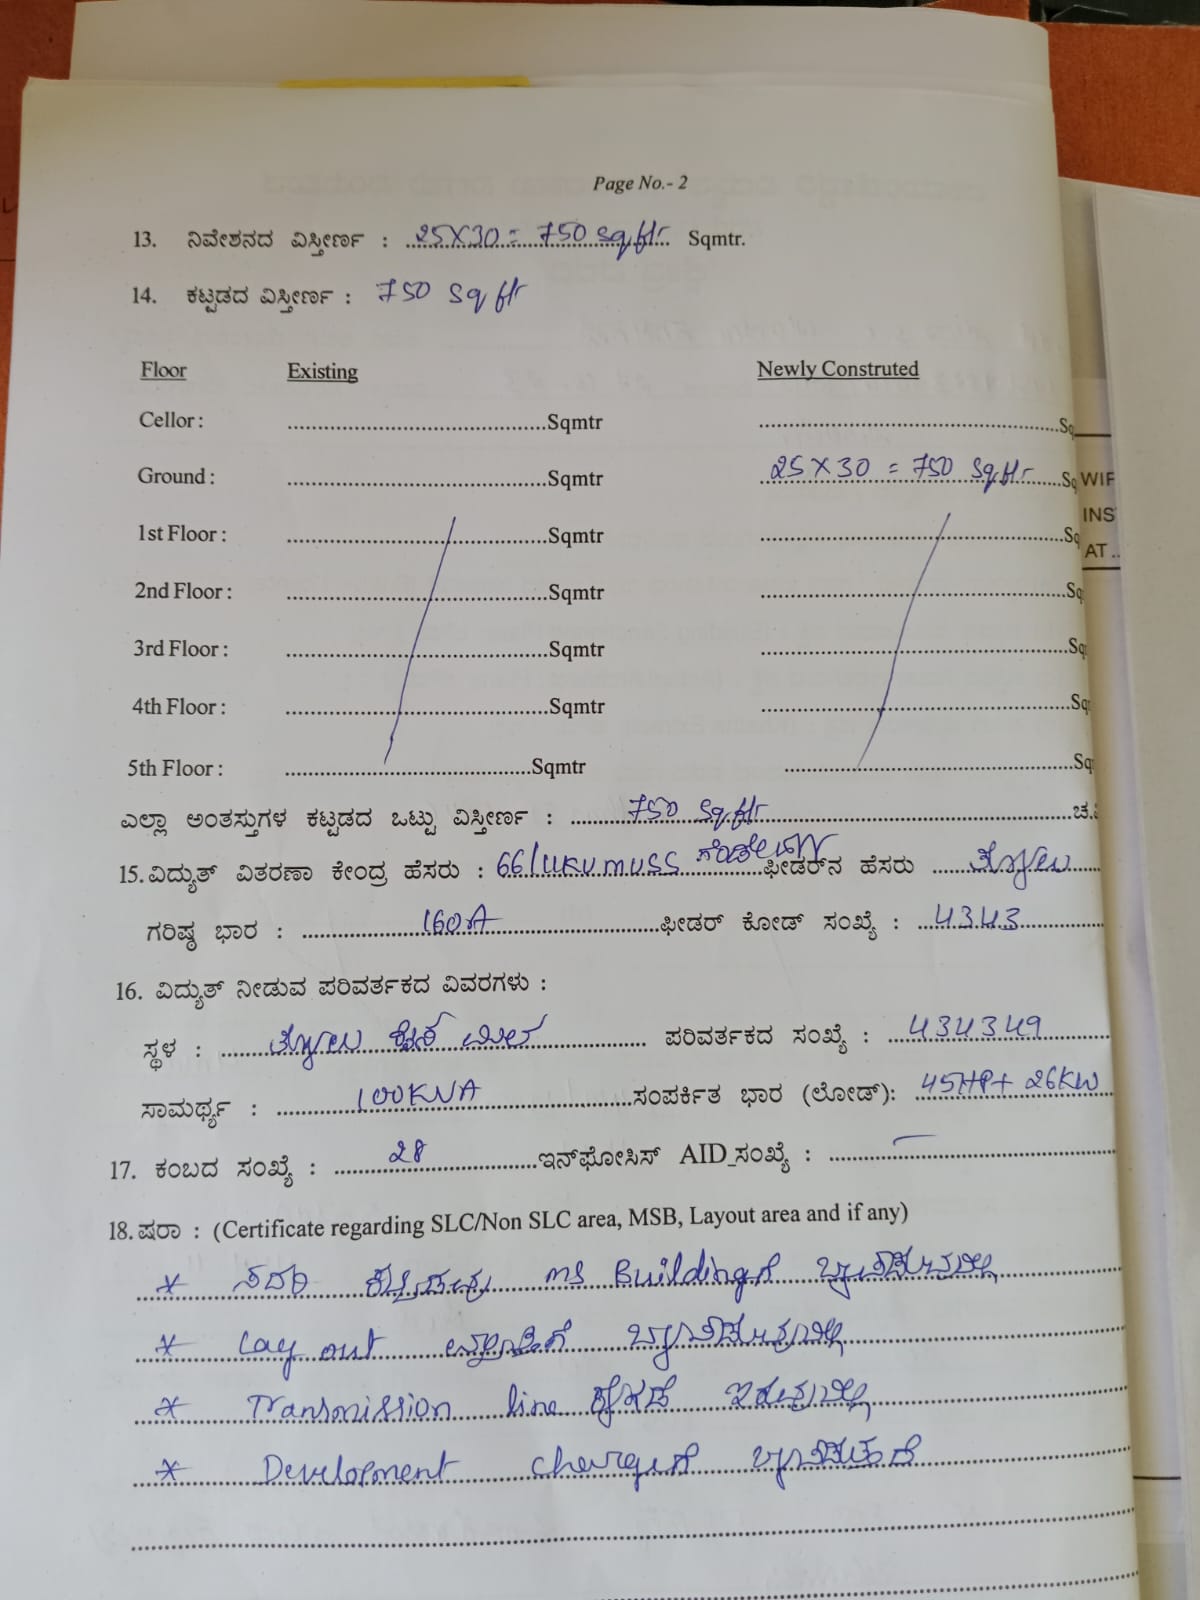 Page No.- 2
13. ನಿವೇಶನದ ವಿಸ್ತೀರ್ಣ : 25X30 = 750 sqftr Sqmtr.
14. ಕಟ್ಟಡದ ವಿಸ್ತೀರ್ಣ : 750 sqftr
Floor Existing Newly Construted
Cellor : Sqmtr Sq
Ground : Sqmtr 25 X 30 = 750 sqftr Sq WIF
INS
1st Floor : Sqmtr Sq
AT ..
2nd Floor : Sqmtr Sq
3rd Floor : Sqmtr Sq
4th Floor : Sqmtr Sq
5th Floor : Sqmtr Sq
ಎಲ್ಲಾ ಅಂತಸ್ತುಗಳ ಕಟ್ಟಡದ ಒಟ್ಟು ವಿಸ್ತೀರ್ಣ : 750 sqftr ಚ.
15. ವಿದ್ಯುತ್ ವಿತರಣಾ ಕೇಂದ್ರ ಹೆಸರು : 66/11KV MUSS ಫೀಡರ್‌ನ ಹೆಸರು
ಗರಿಷ್ಠ ಭಾರ : 160A ಫೀಡರ್ ಕೋಡ್ ಸಂಖ್ಯೆ : 4343
16. ವಿದ್ಯುತ್ ನೀಡುವ ಪರಿವರ್ತಕದ ವಿವರಗಳು :
ಸ್ಥಳ : ಪರಿವರ್ತಕದ ಸಂಖ್ಯೆ : 434349
ಸಾಮರ್ಥ್ಯ : 100KVA ಸಂಪರ್ಕಿತ ಭಾರ (ಲೋಡ್): 45HP+ 26KW
17. ಕಂಬದ ಸಂಖ್ಯೆ : 28 ಇನ್‌ಫೋಸಿಸ್ AID_ಸಂಖ್ಯೆ : —
18. ಷರಾ : (Certificate regarding SLC/Non SLC area, MSB, Layout area and if any)
* ಸದರಿ ಕಟ್ಟಡವು MS Buildingಗೆ
* Lay out
* Transmission line ಕೆಳಗಡೆ ಇರುವುದಿಲ್ಲ
* Development